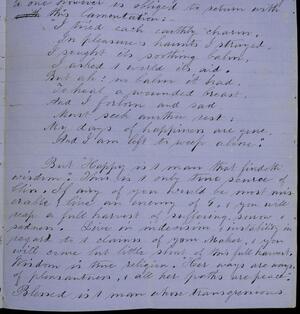 to one however is obliged to return with
this lamentation:—
I tried each earthly charm,
In pleasure's haunts I strayed,
I sought its soothing balm,
I asked t world its aid.
But ah! no balm it had
To heal a wounded breast.
And I forlorn and sad
Must seek another rest:
My days of happiness are gone,
And I am left to weep alone!
But Happy is t man that findeth
wisdom! This is t only true source of
bliss. If any of you would be most mis-
erable, live an enemy of G, & you will
reap a full harvest of suffering, sorrow &
sadness. Live in indecision, & instability in
regard to t claims of your Maker, & you
will come but little short of this full harvest.
Wisdom is true religion. Her ways are ways
of pleasantness, & all her paths are peace.
Blessed is t man whose transgressions